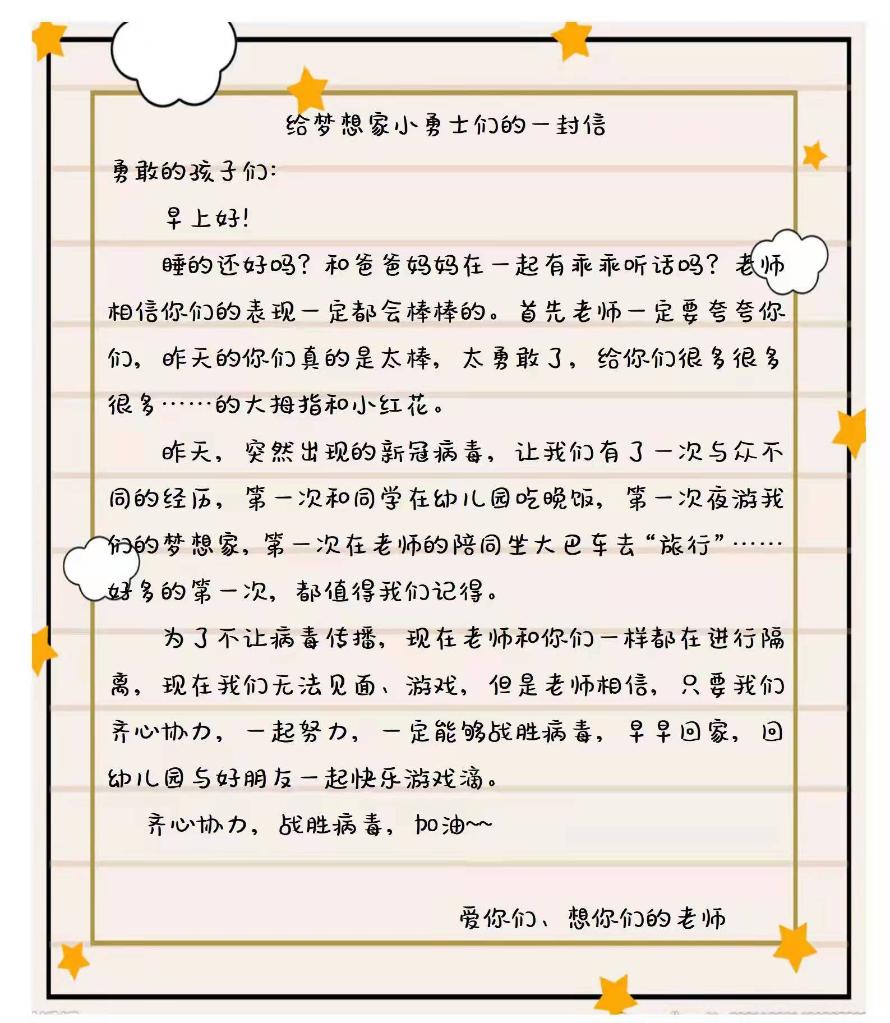 给梦想家小勇士们的一封信
勇敢的孩子们：
早上好！
睡的还好吗？和爸爸妈妈在一起有乖乖听话吗？老师
相信你们的表现一定都会棒棒的。首先老师一定要夸夸你
们，昨天的你们真的是太棒，太勇敢了，给你们很多很多
很多……的大拇指和小红花。
昨天，突然出现的新冠病毒，让我们有了一次与众不
同的经历，第一次和同学在幼儿园吃晚饭，第一次夜游我
们的梦想家，第一次在老师的陪同坐大巴车去“旅行”……
好多的第一次，都值得我们记得。
为了不让病毒传播，现在老师和你们一样都在进行隔
离，现在我们无法见面、游戏，但是老师相信，只要我们
齐心协力，一起努力，一定能够战胜病毒，早早回家，回
幼儿园与好朋友一起快乐游戏滴。
齐心协力，战胜病毒，加油~~
爱你们、想你们的老师